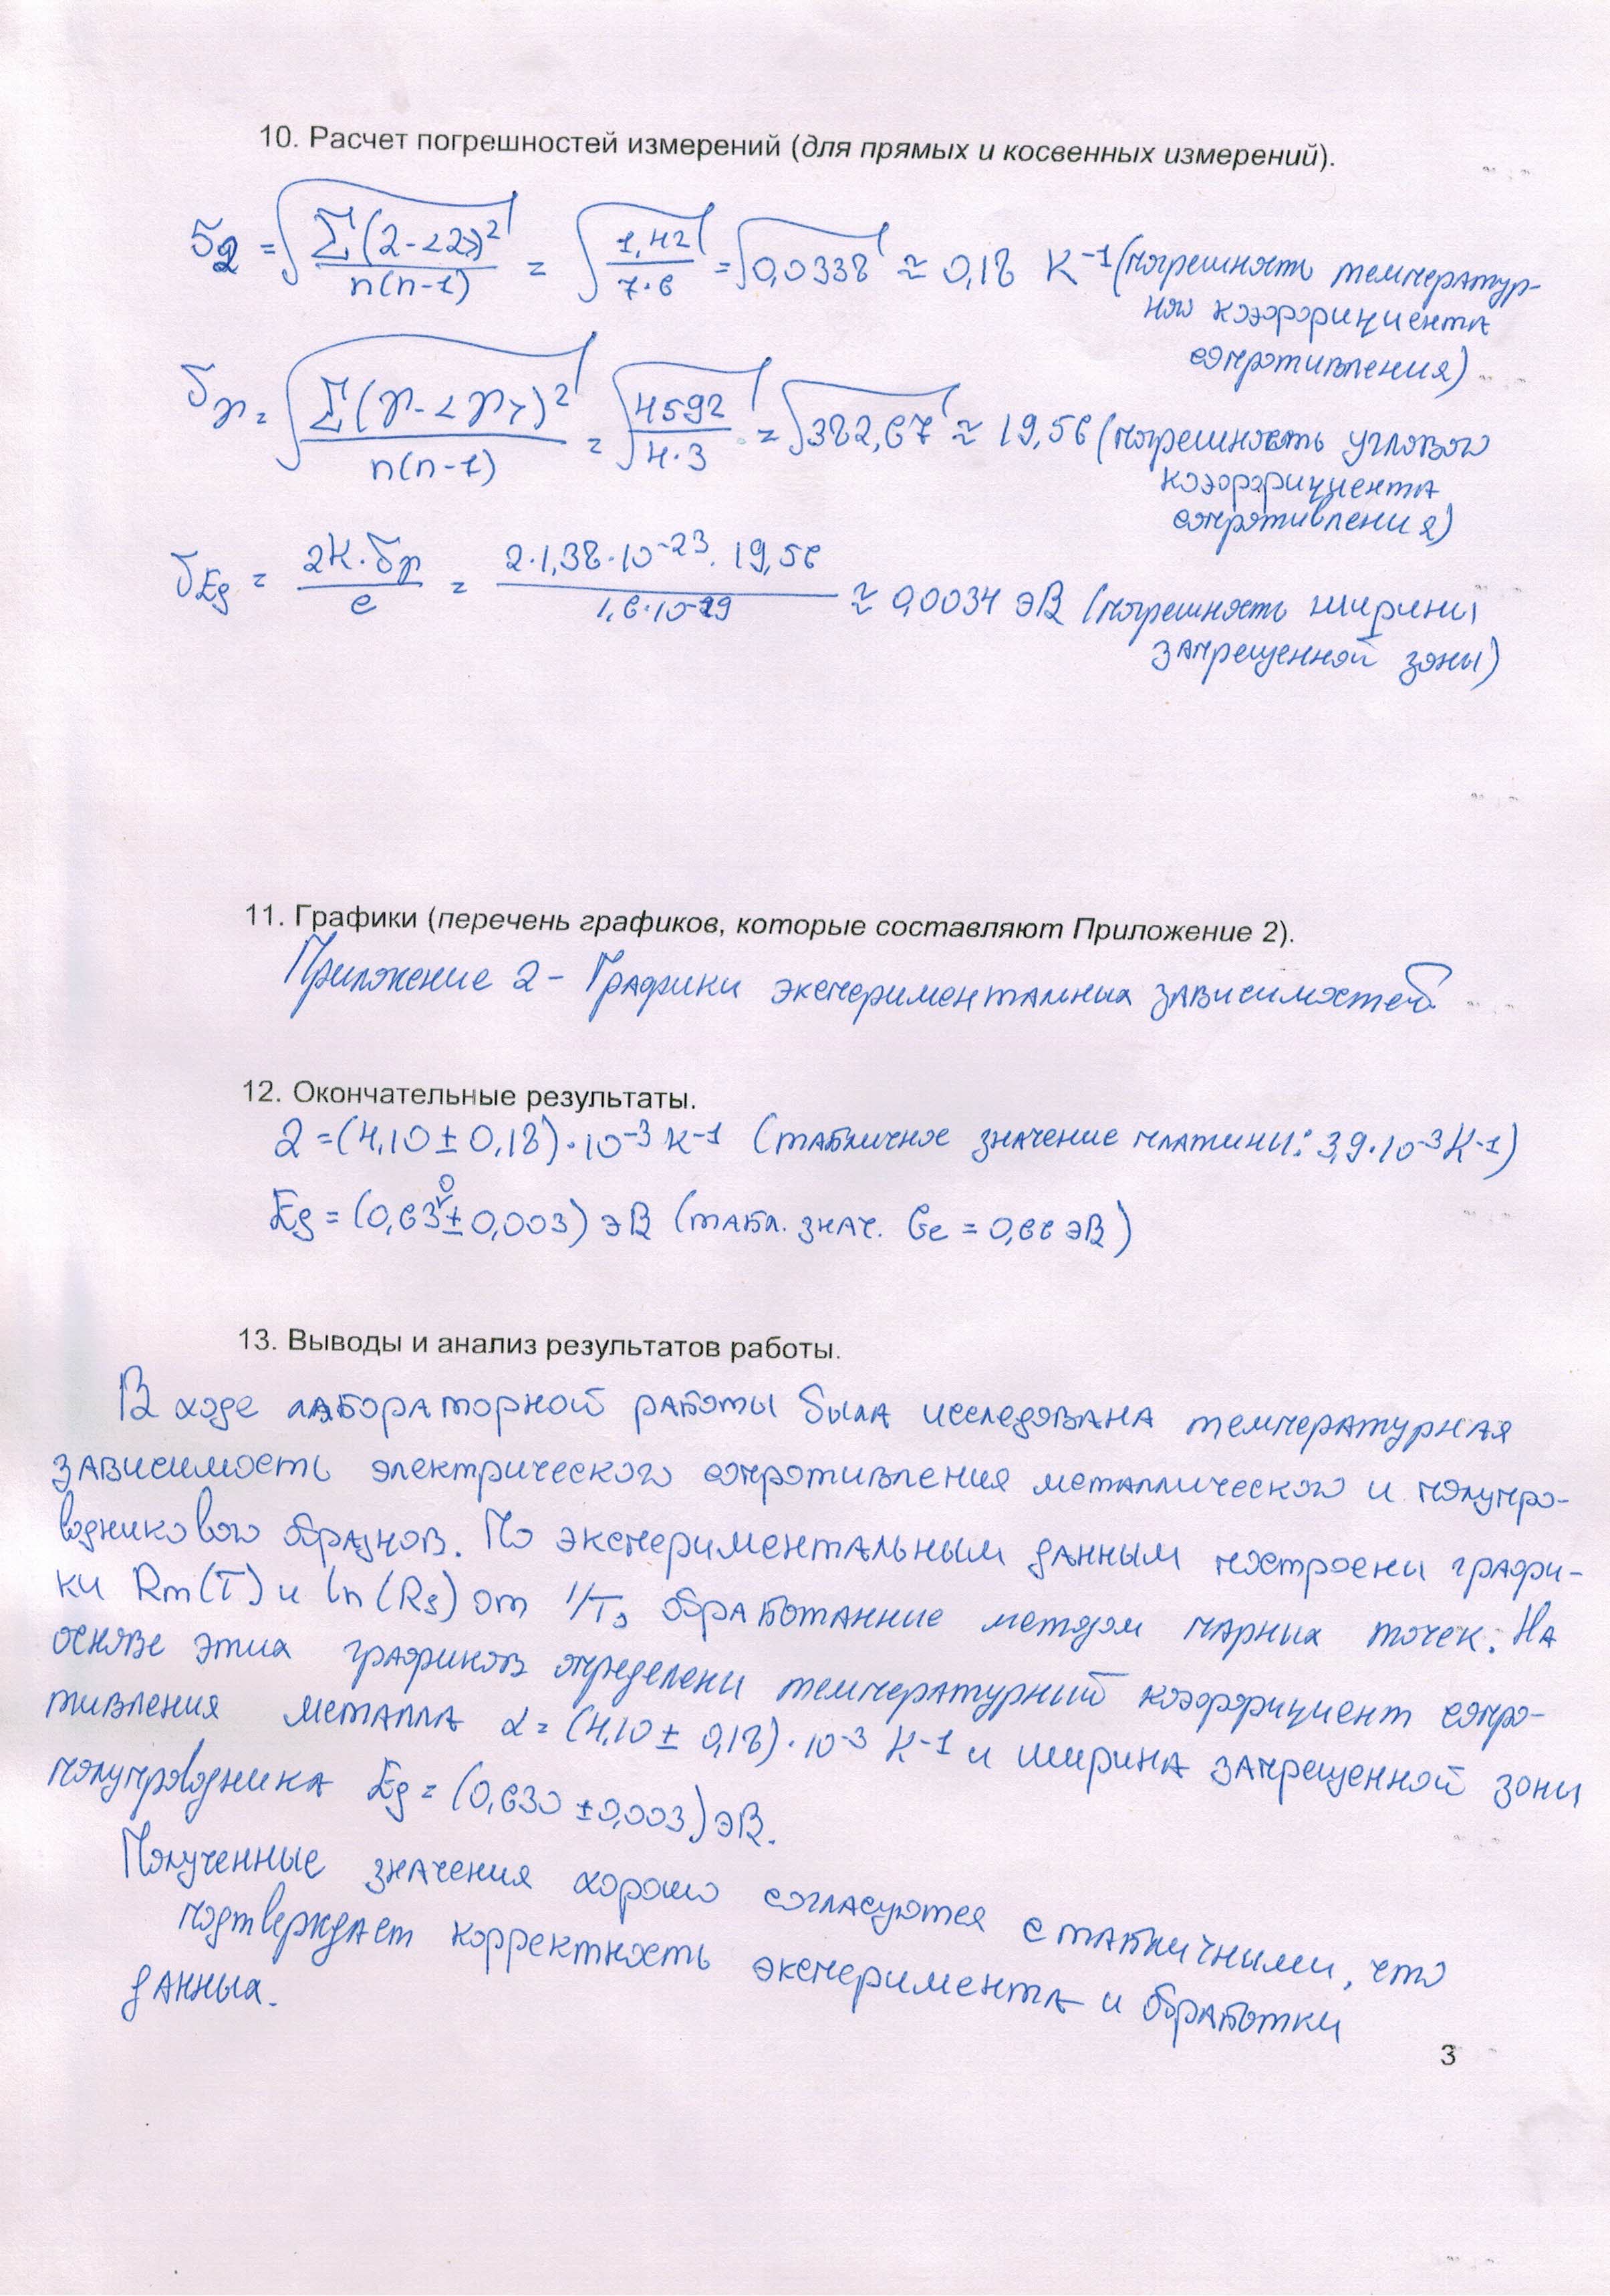 10. Расчет погрешностей измерений (для прямых и косвенных измерений).
δα = √(Σ(α-<α>)² / n(n-1)) = √(1,42 / 7·6) = √0,0338 ≈ 0,18 К⁻¹ (погрешность температур-
ного коэффициента
сопротивления)
δγ = √(Σ(γ-<γ>)² / n(n-1)) = √(4592 / 4·3) = √382,67 ≈ 19,56 (погрешность углового
коэффициента
сопротивления)
δEg = 2k·δγ / e = 2·1,38·10⁻²³·19,56 / 1,6·10⁻¹⁹ ≈ 0,0034 эВ (погрешность ширины
запрещенной зоны)
11. Графики (перечень графиков, которые составляют Приложение 2).
Приложение 2 - Графики экспериментальных зависимостей
12. Окончательные результаты.
α = (4,10 ± 0,18)·10⁻³ К⁻¹ (табличное значение платины: 3,9·10⁻³ К⁻¹)
Eg = (0,630 ± 0,003) эВ (табл. знач. Ge = 0,66 эВ)
13. Выводы и анализ результатов работы.
В ходе лабораторной работы была исследована температурная
зависимость электрического сопротивления металлического и полупро-
водникового образцов. По экспериментальным данным построены графи-
ки Rm(T) и ln(Rs) от 1/T, обработанные методом парных точек. На
основе этих графиков определены температурный коэффициент сопро-
тивления металла α = (4,10 ± 0,18)·10⁻³ К⁻¹ и ширина запрещенной зоны
полупроводника Eg = (0,630 ± 0,003) эВ.
Полученные значения хорошо согласуются с табличными, что
подтверждает корректность эксперимента и обработки
данных.
3